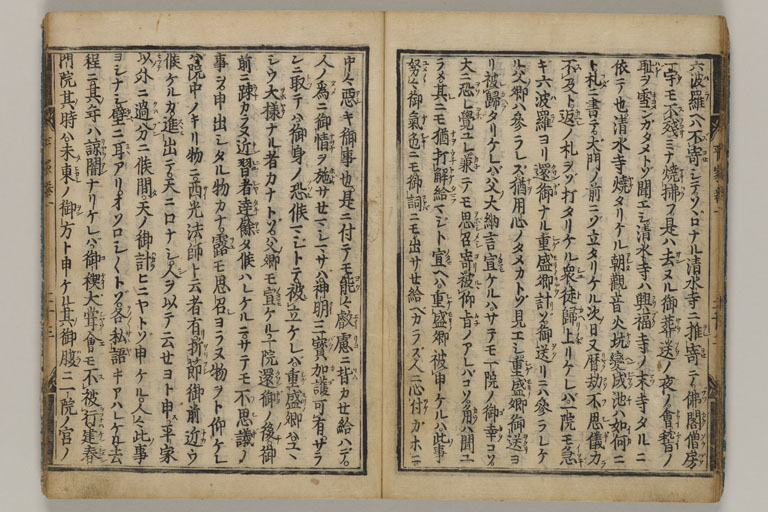 六波羅ヘハ不寄シテソヾロナル清水寺ニ推寄テ佛閣僧房
一宇モ不殘ミナ燒拂フ是ハ去ヌル御葬送ノ夜ノ會稽ノ
耻ヲ雪ンカタメトゾ聞エシ清水寺ハ興福寺ノ末寺タルニ
依テ也清水寺燒タリケル朝觀音火坑變成池ハ如何ニ
ト札ニ書テ大門ノ前ニゾ立タリケル次日又曆劫不思儀力
不及ト返ノ札ヲゾ打タリケル衆徒歸上リケレバ一院モ急
キ六波羅ヨリ還御ナル重盛卿計ゾ御送リニハ參ラレケ
ル父卿ハ參ラレズ猶用心ノタメカトゾ見エシ重盛卿御送ヨ
リ被歸タリケレバ父大納言宣ケルハサテモ一院ノ御幸コソ
大ニ恐レ覺ユレ兼テモ思召寄被仰旨ノアレバコソ角ハ聞ユ
ラメ其ニモ猶打解給マジト宣ヘハ重盛卿被申ケルハ此事
努々御氣色ニモ御詞ニモ出サセ給ヘカラス人ニ心付カホニ
中々惡キ御事也是ニ付テモ能々叡慮ニ背カセ給ハデ
人ノ爲ニ御情ヲ施サセマシマサハ神明三寶加護可有サラ
ンニ取テハ御身ノ恐候マジトテ被立ケレバ重盛卿ハユヽ
シウ大樣ナル者カナトゾ父卿モ宣ケル一院還御ノ後御
前ニ踈カラヌ近習者達餘タ候ハレケルニサテモ不思議ノ
事ヲ申出シタル物カナ露モ思召ヨラヌ物ヲト仰ケレ
バ院中ノキリ物ニ西光法師ト云者有折節御前近ウ
候ケルガ進出テ天ニ口ナシ人ヲ以テ云セヨト申ス平家
以外ニ過分ニ候間天ノ御計ヒニヤトゾ申ケル人々此事
ヨシナシ壁ニ耳アリオソロシ〱トゾ各私語キアハレケル去
程ニ其年ハ諒闇ナリケレバ御禊大嘗會モ不被行建春
門院其時ハ未東ノ御方ト申ケル其御腹ニ一院ノ宮ノ